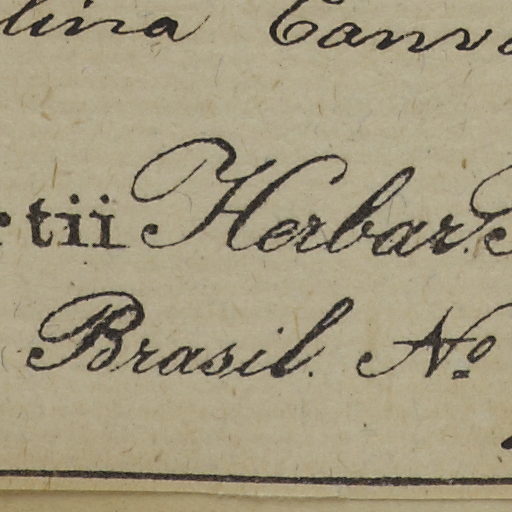 lina Canv
etii Herbar.
Brasil. No